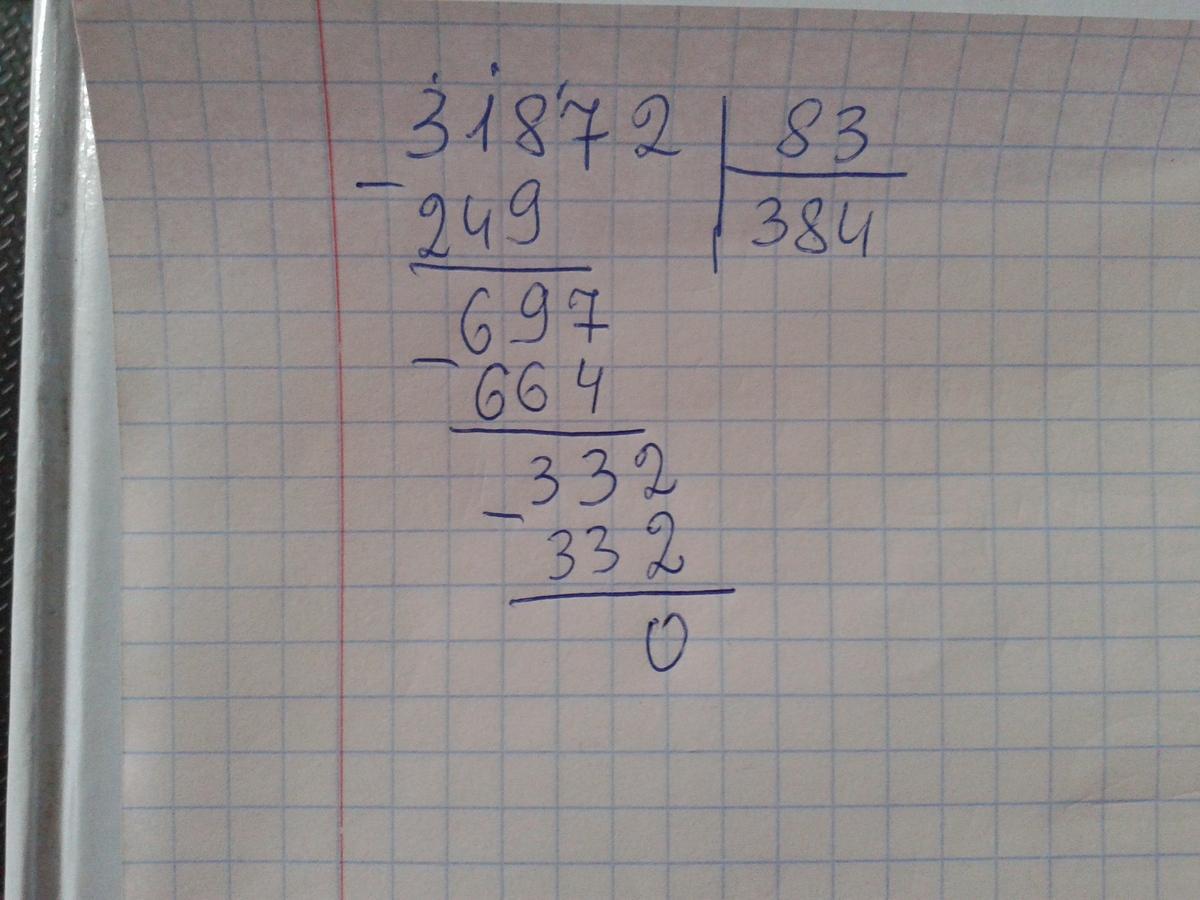 31872 | 83
- 249 | 384
697
- 664
332
- 332
0